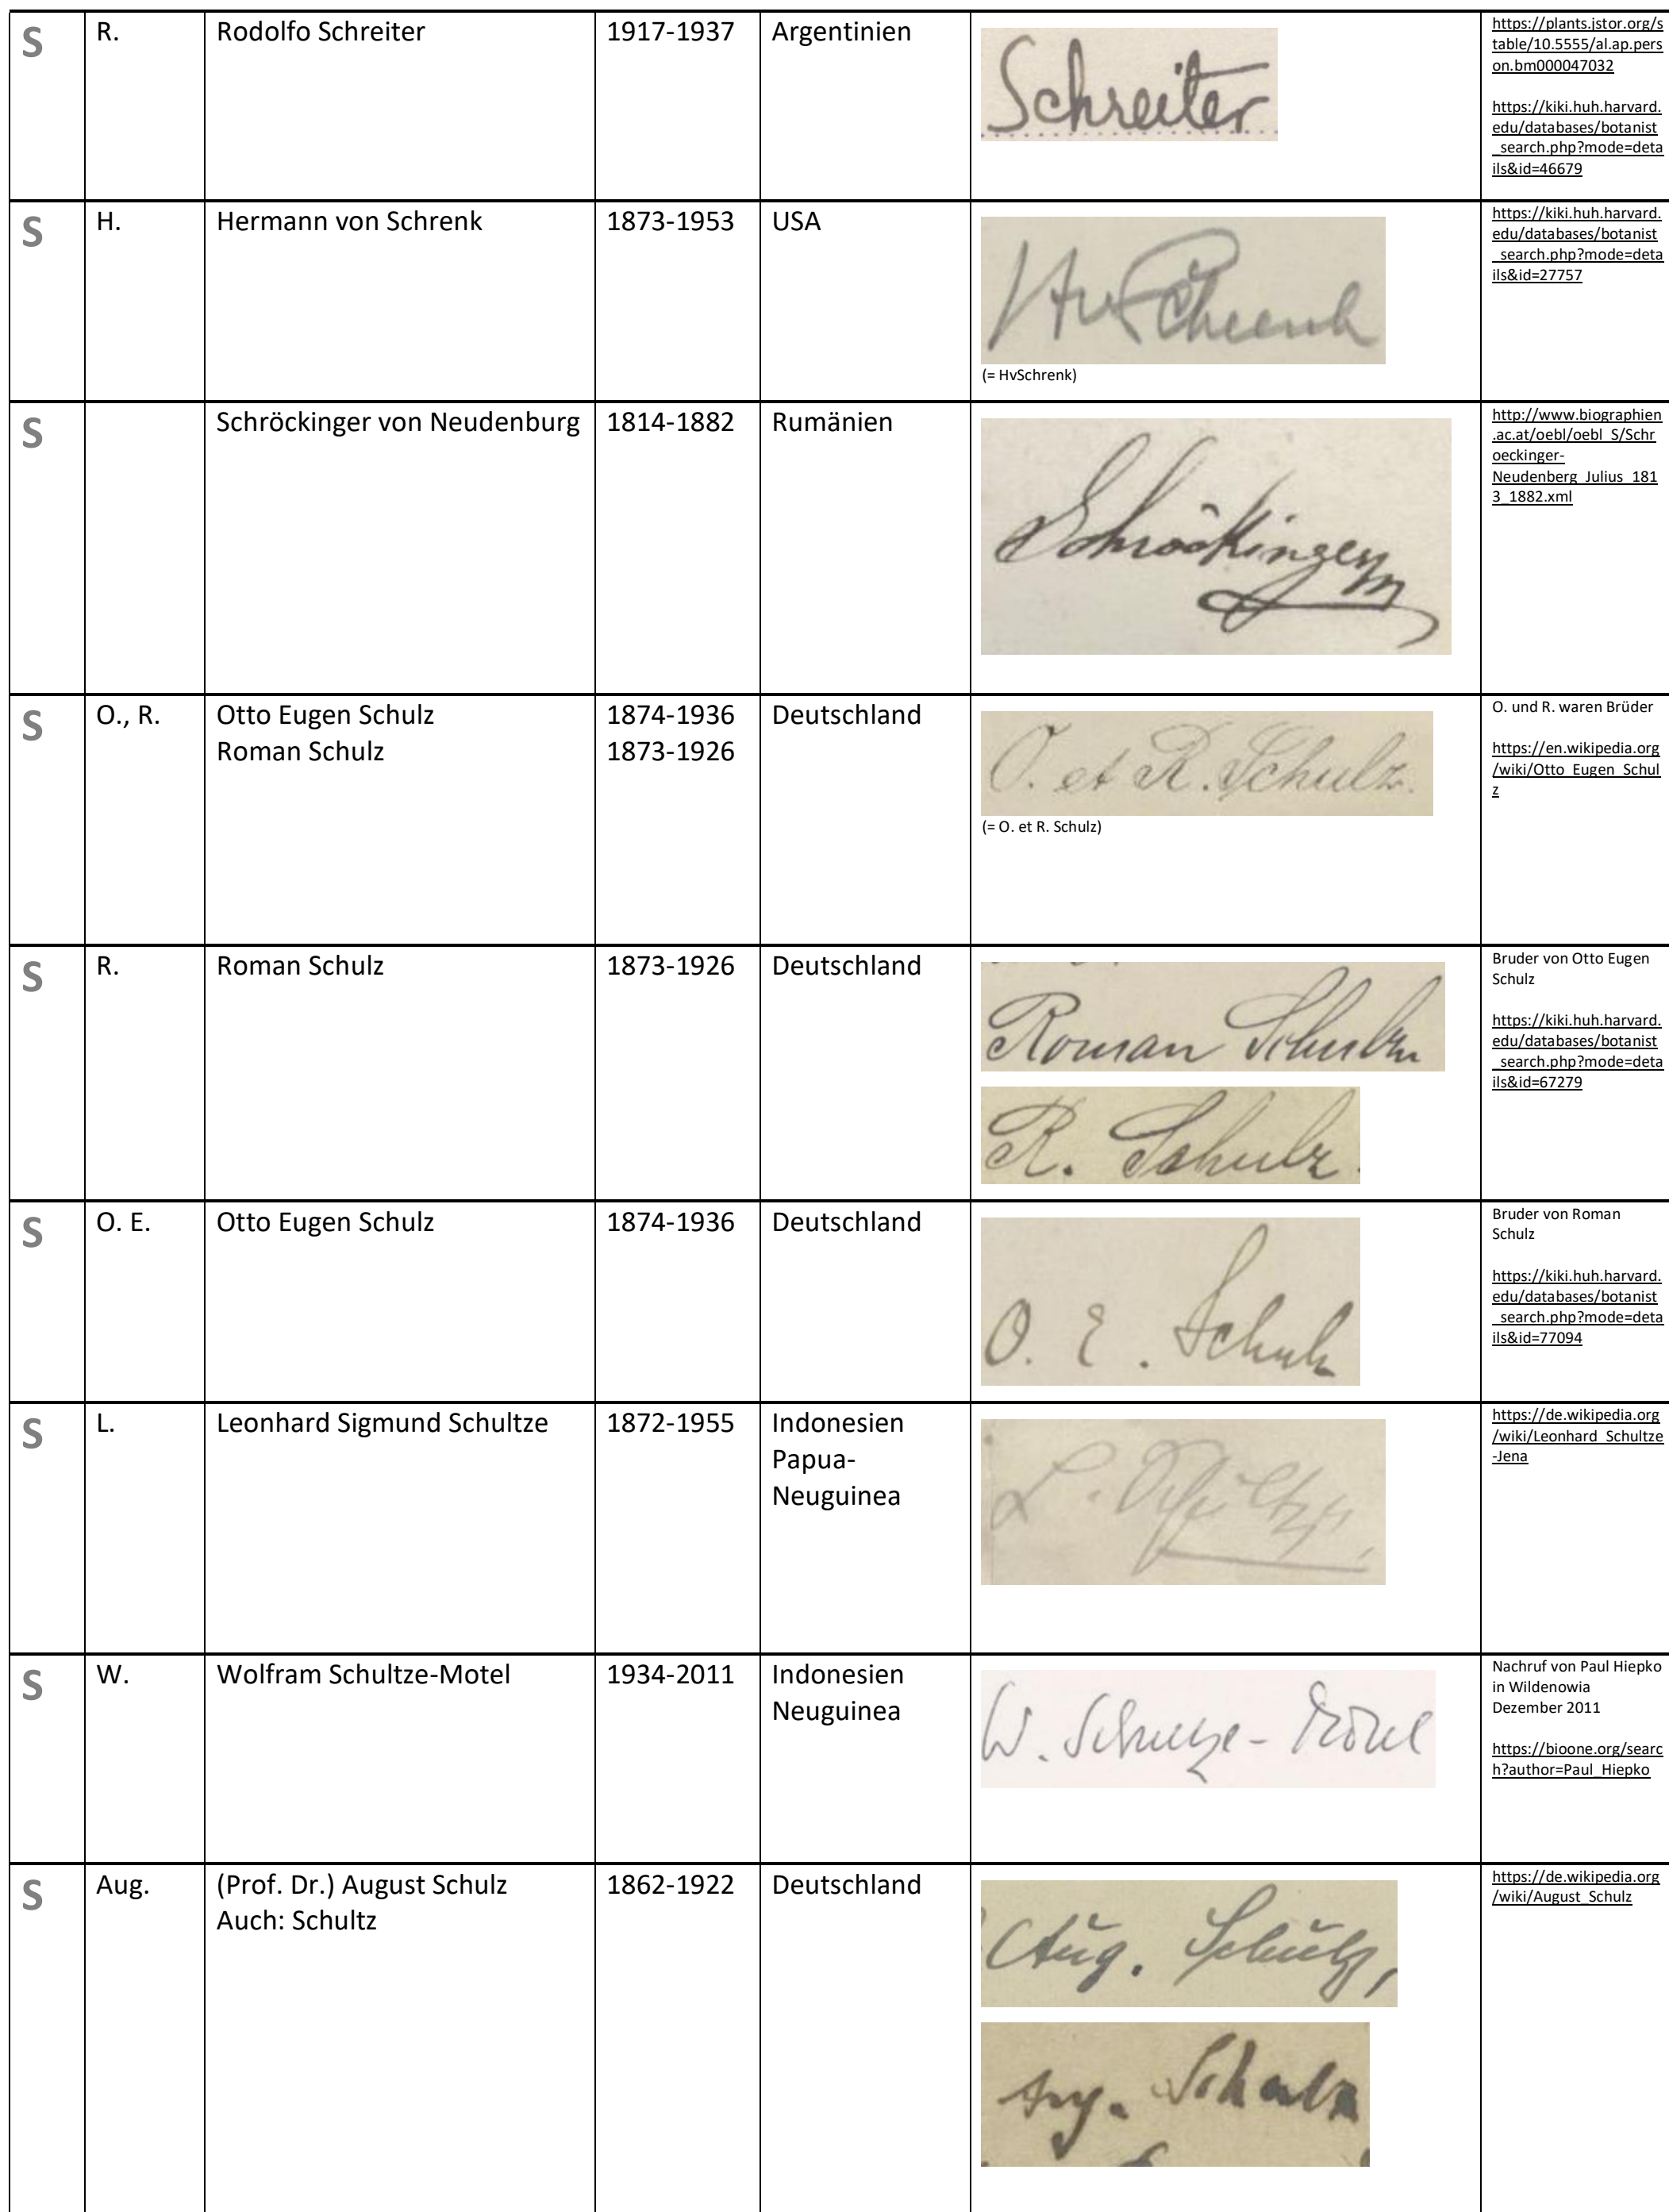 S
R.
Rodolfo Schreiter
1917-1937
Argentinien
Schreiter
https://plants.jstor.org/s
table/10.5555/al.ap.pers
on.bm000047032
https://kiki.huh.harvard.
edu/databases/botanist
_search.php?mode=deta
ils&id=46679
S
H.
Hermann von Schrenk
1873-1953
USA
HvSchrenk
(= HvSchrenk)
https://kiki.huh.harvard.
edu/databases/botanist
_search.php?mode=deta
ils&id=27757
S
Schröckinger von Neudenburg
1814-1882
Rumänien
Schröckinger
http://www.biographien
.ac.at/oebl/oebl_S/Schr
oeckinger-
Neudenberg_Julius_181
3_1882.xml
S
O., R.
Otto Eugen Schulz
Roman Schulz
1874-1936
1873-1926
Deutschland
O. et R. Schulz.
(= O. et R. Schulz)
O. und R. waren Brüder
https://en.wikipedia.org
/wiki/Otto_Eugen_Schul
z
S
R.
Roman Schulz
1873-1926
Deutschland
Roman Schulz
R. Schulz.
Bruder von Otto Eugen
Schulz
https://kiki.huh.harvard.
edu/databases/botanist
_search.php?mode=deta
ils&id=67279
S
O. E.
Otto Eugen Schulz
1874-1936
Deutschland
O. E. Schulz
Bruder von Roman
Schulz
https://kiki.huh.harvard.
edu/databases/botanist
_search.php?mode=deta
ils&id=77094
S
L.
Leonhard Sigmund Schultze
1872-1955
Indonesien
Papua-
Neuguinea
L. Schultze
https://de.wikipedia.org
/wiki/Leonhard_Schultze
-Jena
S
W.
Wolfram Schultze-Motel
1934-2011
Indonesien
Neuguinea
W. Schultze-Motel
Nachruf von Paul Hiepko
in Wildenowia
Dezember 2011
https://bioone.org/searc
h?author=Paul_Hiepko
S
Aug.
(Prof. Dr.) August Schulz
Auch: Schultz
1862-1922
Deutschland
Aug. Schulz,
Aug. Schulz
https://de.wikipedia.org
/wiki/August_Schulz